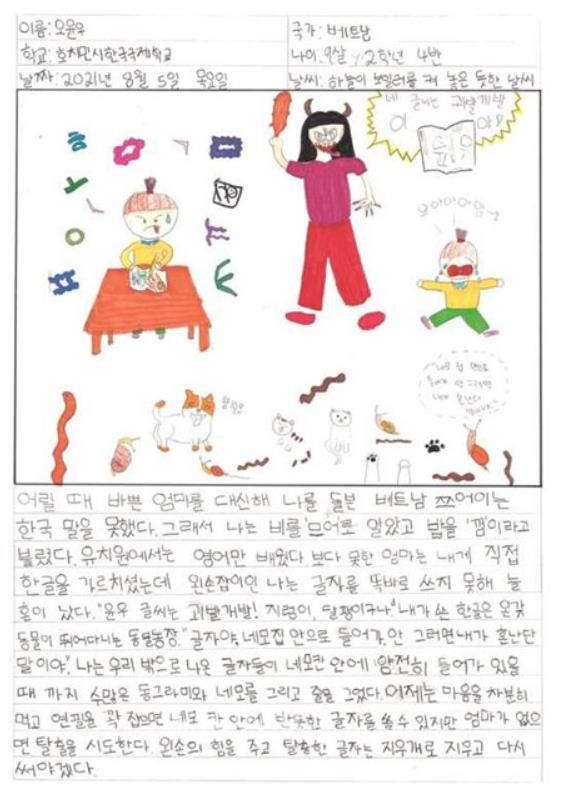 이름: 오윤우
국가: 베트남
학교: 호치민시한국국제학교
나이: 9살 / 2학년 4반
날짜: 2021년 8월 5일 목요일
날씨: 하늘이 보일러를 켜 놓은 듯한 날씨
네 글씨는 괴발개발
이 야!
으아아아앙~
어릴 때 바쁜 엄마를 대신해 나를 돌본 베트남 쯔어이는
한국 말을 못했다. 그래서 나는 비를 '므어'로 알았고 밥을 '껌'이라고
불렀다. 유치원에서는 영어만 배웠다 보다 못한 엄마는 내게 직접
한글을 가르치셨는데 왼손잡이인 나는 글자를 똑바로 쓰지 못해 늘
혼이 났다. "윤우 글씨는 괴발개발! 지렁이, 달팽이구나" 내가 쓴 한글은 온갖
동물이 뛰어다니는 동물농장. "글자야, 네모집 안으로 들어가, 안 그러면 내가 혼난단
말이야." 나는 우리 밖으로 나온 글자들이 네모칸 안에 얌전히 들어가 있을
때 까지 수많은 동그라미와 네모를 그리고 줄을 그었다. 이제는 마음을 차분히
먹고 연필을 꽉 잡으면 네모 칸 안에 반듯한 글자를 쓸 수 있지만 엄마가 없으
면 탈출을 시도한다. 왼손의 힘을 주고 탈출한 글자는 지우개로 지우고 다시
써야겠다.